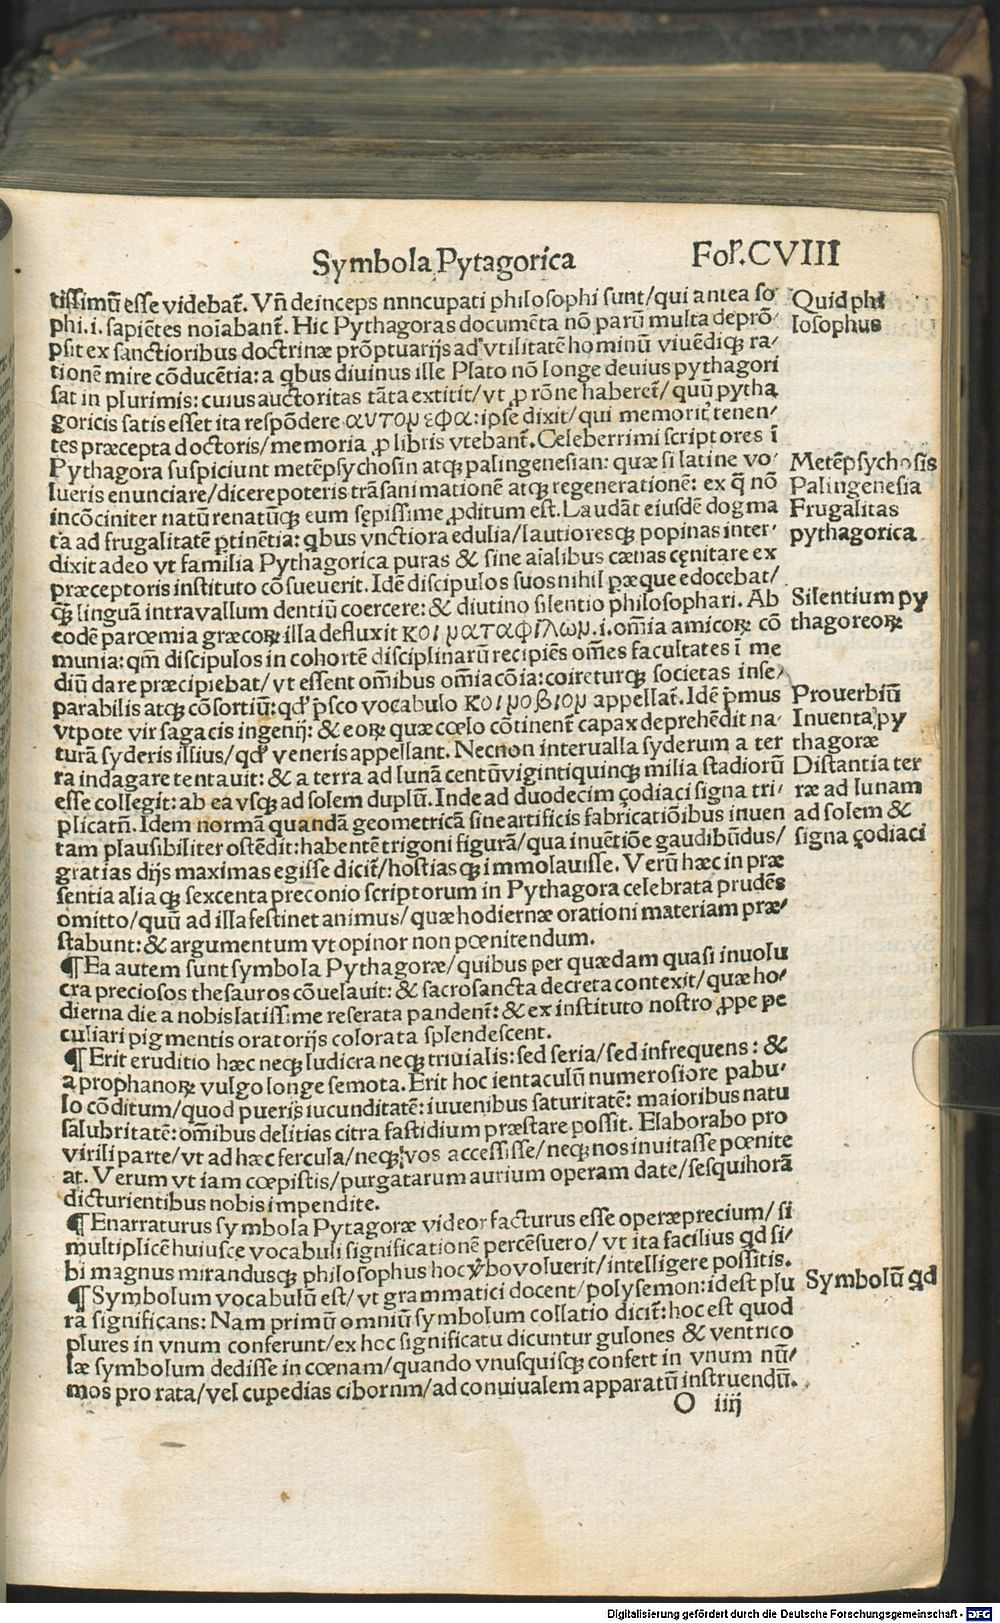 Symbola Pytagorica
Fol. CVIII
tissimū esse videbat̄. Vn̄ deinceps nnncupati philosophi sunt/qui antea so
phi.i. sapiētes noīabant̄. Hic Pythagoras documēta nō parū multa deprō-
psit ex sanctioribus doctrinæ prōptuarijs ad vtilitatē hominū viuēdiqꝫ ra-
tionē mire cōducētia: a qbus diuinus ille Plato nō longe deuius pythagori
sat in plurimis: cuius auctoritas tāta extitit/vt ꝓ rōne haberet̄/quū pytha
goricis satis esset ita respōdere αυτομ εφα: ipse dixit/qui memorit̄ tenen-
tes præcepta doctoris/memoria ꝓ libris vtebant̄. Celeberrimi scriptores ī
Pythagora suspiciunt metēpsychosin atqꝫ palingenesian: quæ si latine vo-
lueris enunciare/dicere poteris trāsanimationē atqꝫ regenerationē: ex q̄ nō
incōciniter natū renatūqꝫ eum sępissime ꝓditum est. Laudāt eiusdē dogma
ta ad frugalitatē ꝑtinētia: qbus vnctiora edulia/lautioresqꝫ popinas inter-
dixit adeo vt familia Pythagorica puras & sine aīalibus cænas cęnitare ex
præceptoris instituto cōsueuerit. Idē discipulos suos nihil p̄æque edocebat/
q̄ꝫ linguā intra vallum dentiū coercere: & diutino silentio philosophari. Ab
eodē parœmia græcoꝝ illa defluxit κοι ματαφίλωμ.i. om̄ia amicoꝝ cō
munia: qm̄ discipulos in cohortē disciplinarū recipiēs om̄es facultates ī me
diū dare præcipiebat/vt essent om̄ibus om̄ia cōia: coireturqꝫ societas inse-
parabilis atqꝫ cōsortiū: qd' p̄sco vocabulo κοι μοβιομ appellat̄. Idē p̄mus
vtpote vir sagacis ingenij: & eoꝝ quæ cœlo cōtinent̄ capax deprehēdit na-
turā syderis illius/qd' veneris appellant. Necnon interualla syderum a ter
ra indagare tentauit: & a terra ad lunā centūvigintiquinqꝫ milia stadiorū
esse collegit: ab ea vsqꝫ ad solem duplū. Inde ad duodecim çodiaci signa tri-
plicatn̄. Idem normā quandā geometricā sine artificis fabricatiōibus inuen
tam plausibiliter ostēdit: habentē trigoni figurā/qua inuētiōe gaudibūdus/
gratias dijs maximas egisse dicit̄/hostiasqꝫ immolauisse. Verū hæc in præ
sentia aliaqꝫ sexcenta preconio scriptorum in Pythagora celebrata prudēs
omitto/quū ad illa festinet animus/quæ hodiernæ orationi materiam præ-
stabunt: & argumentum vt opinor non pœnitendum.
¶ Ea autem sunt symbola Pythagoræ/quibus per quædam quasi inuolu
cra preciosos thesauros cōuelauit: & sacrosancta decreta contexit/quæ ho-
dierna die a nobis latissime reserata pandent̄: & ex instituto nostro ꝓpe pe
culiari pigmentis oratorijs colorata splendescent.
¶ Erit eruditio hæc neqꝫ ludicra neqꝫ triuialis: sed seria/sed infrequens: &
a prophanoꝝ vulgo longe semota. Erit hoc ientaculū numerosiore pabu-
lo cōditum/quod puerijs iucunditatē: iuuenibus saturitatē: maioribus natu
salubritatē: om̄ibus delitias citra fastidium præstare possit. Elaborabo pro
virili parte/vt ad hæc fercula/neqꝫ vos accessisse/neqꝫ nos inuitasse pœnite
at. Verum vt iam cœpistis/purgatarum aurium operam date/sesquihorā
dicturientibus nobis impendite.
¶ Enarraturus symbola Pytagoræ videor facturus esse operæprecium/si
multiplicē huiusce vocabuli significationē percēsuero/vt ita facilius qd si-
bi magnus mirandusqꝫ philosophus hoc v̇bo voluerit/intelligere possitis.
¶ Symbolum vocabulū est/vt grammatici docent/polysemon: idest plu
ra significans: Nam primū omniū symbolum collatio dicit̄: hoc est quod
plures in vnum conferunt/ex hoc significatu dicuntur gulones & ventrico
læ symbolum dedisse in cœnam/quando vnusquisqꝫ confert in vnum nū-
mos pro rata/vel cupedias cibornm/ad conuiualem apparatū instruendū.
O iiij
Quid phi
losophus
Metēpsychosis
Palingenesia
Frugalitas
pythagorica
Silentium py
thagoreoꝝ
Prouerbiū
Inuenta py
thagoræ
Distantia ter
ræ ad lunam
ad solem &
signa çodiaci
Symbolū qd
Digitalisierung gefördert durch die Deutsche Forschungsgemeinschaft - DFG